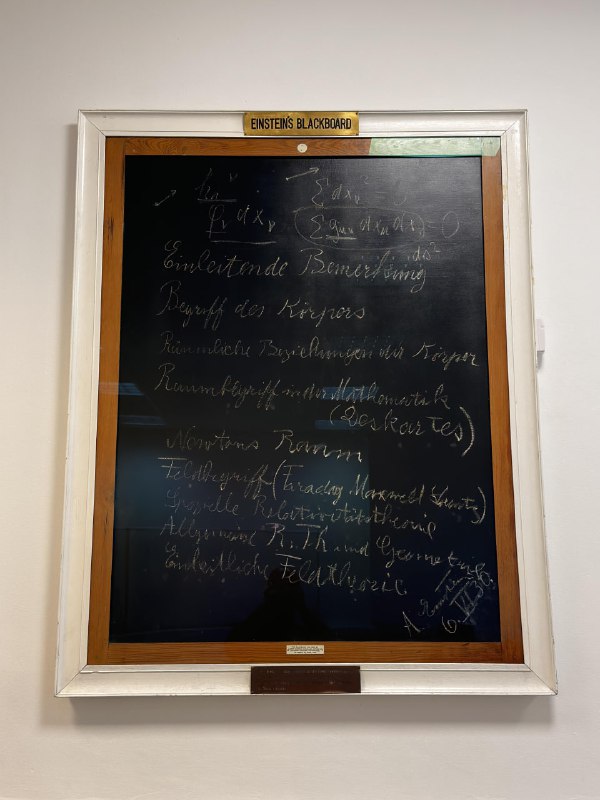 EINSTEIN'S BLACKBOARD
Σ dxν²
dxν (Σ gμν dxμ dxν) = 0
ds²
Einleitende Bemerkung
Begriff des Körpers
Räumliche Beziehungen der Körper
Raumbegriff in der Mathematik
(Deskartes)
Newtons Raum
Feldbegriff (Faraday Maxwell Lorentz)
Spezielle Relativitätstheorie
Allgemeine R. Th. und Geometrie
Einheitliche Feldtheorie
A. Einstein
6. VI. 30.